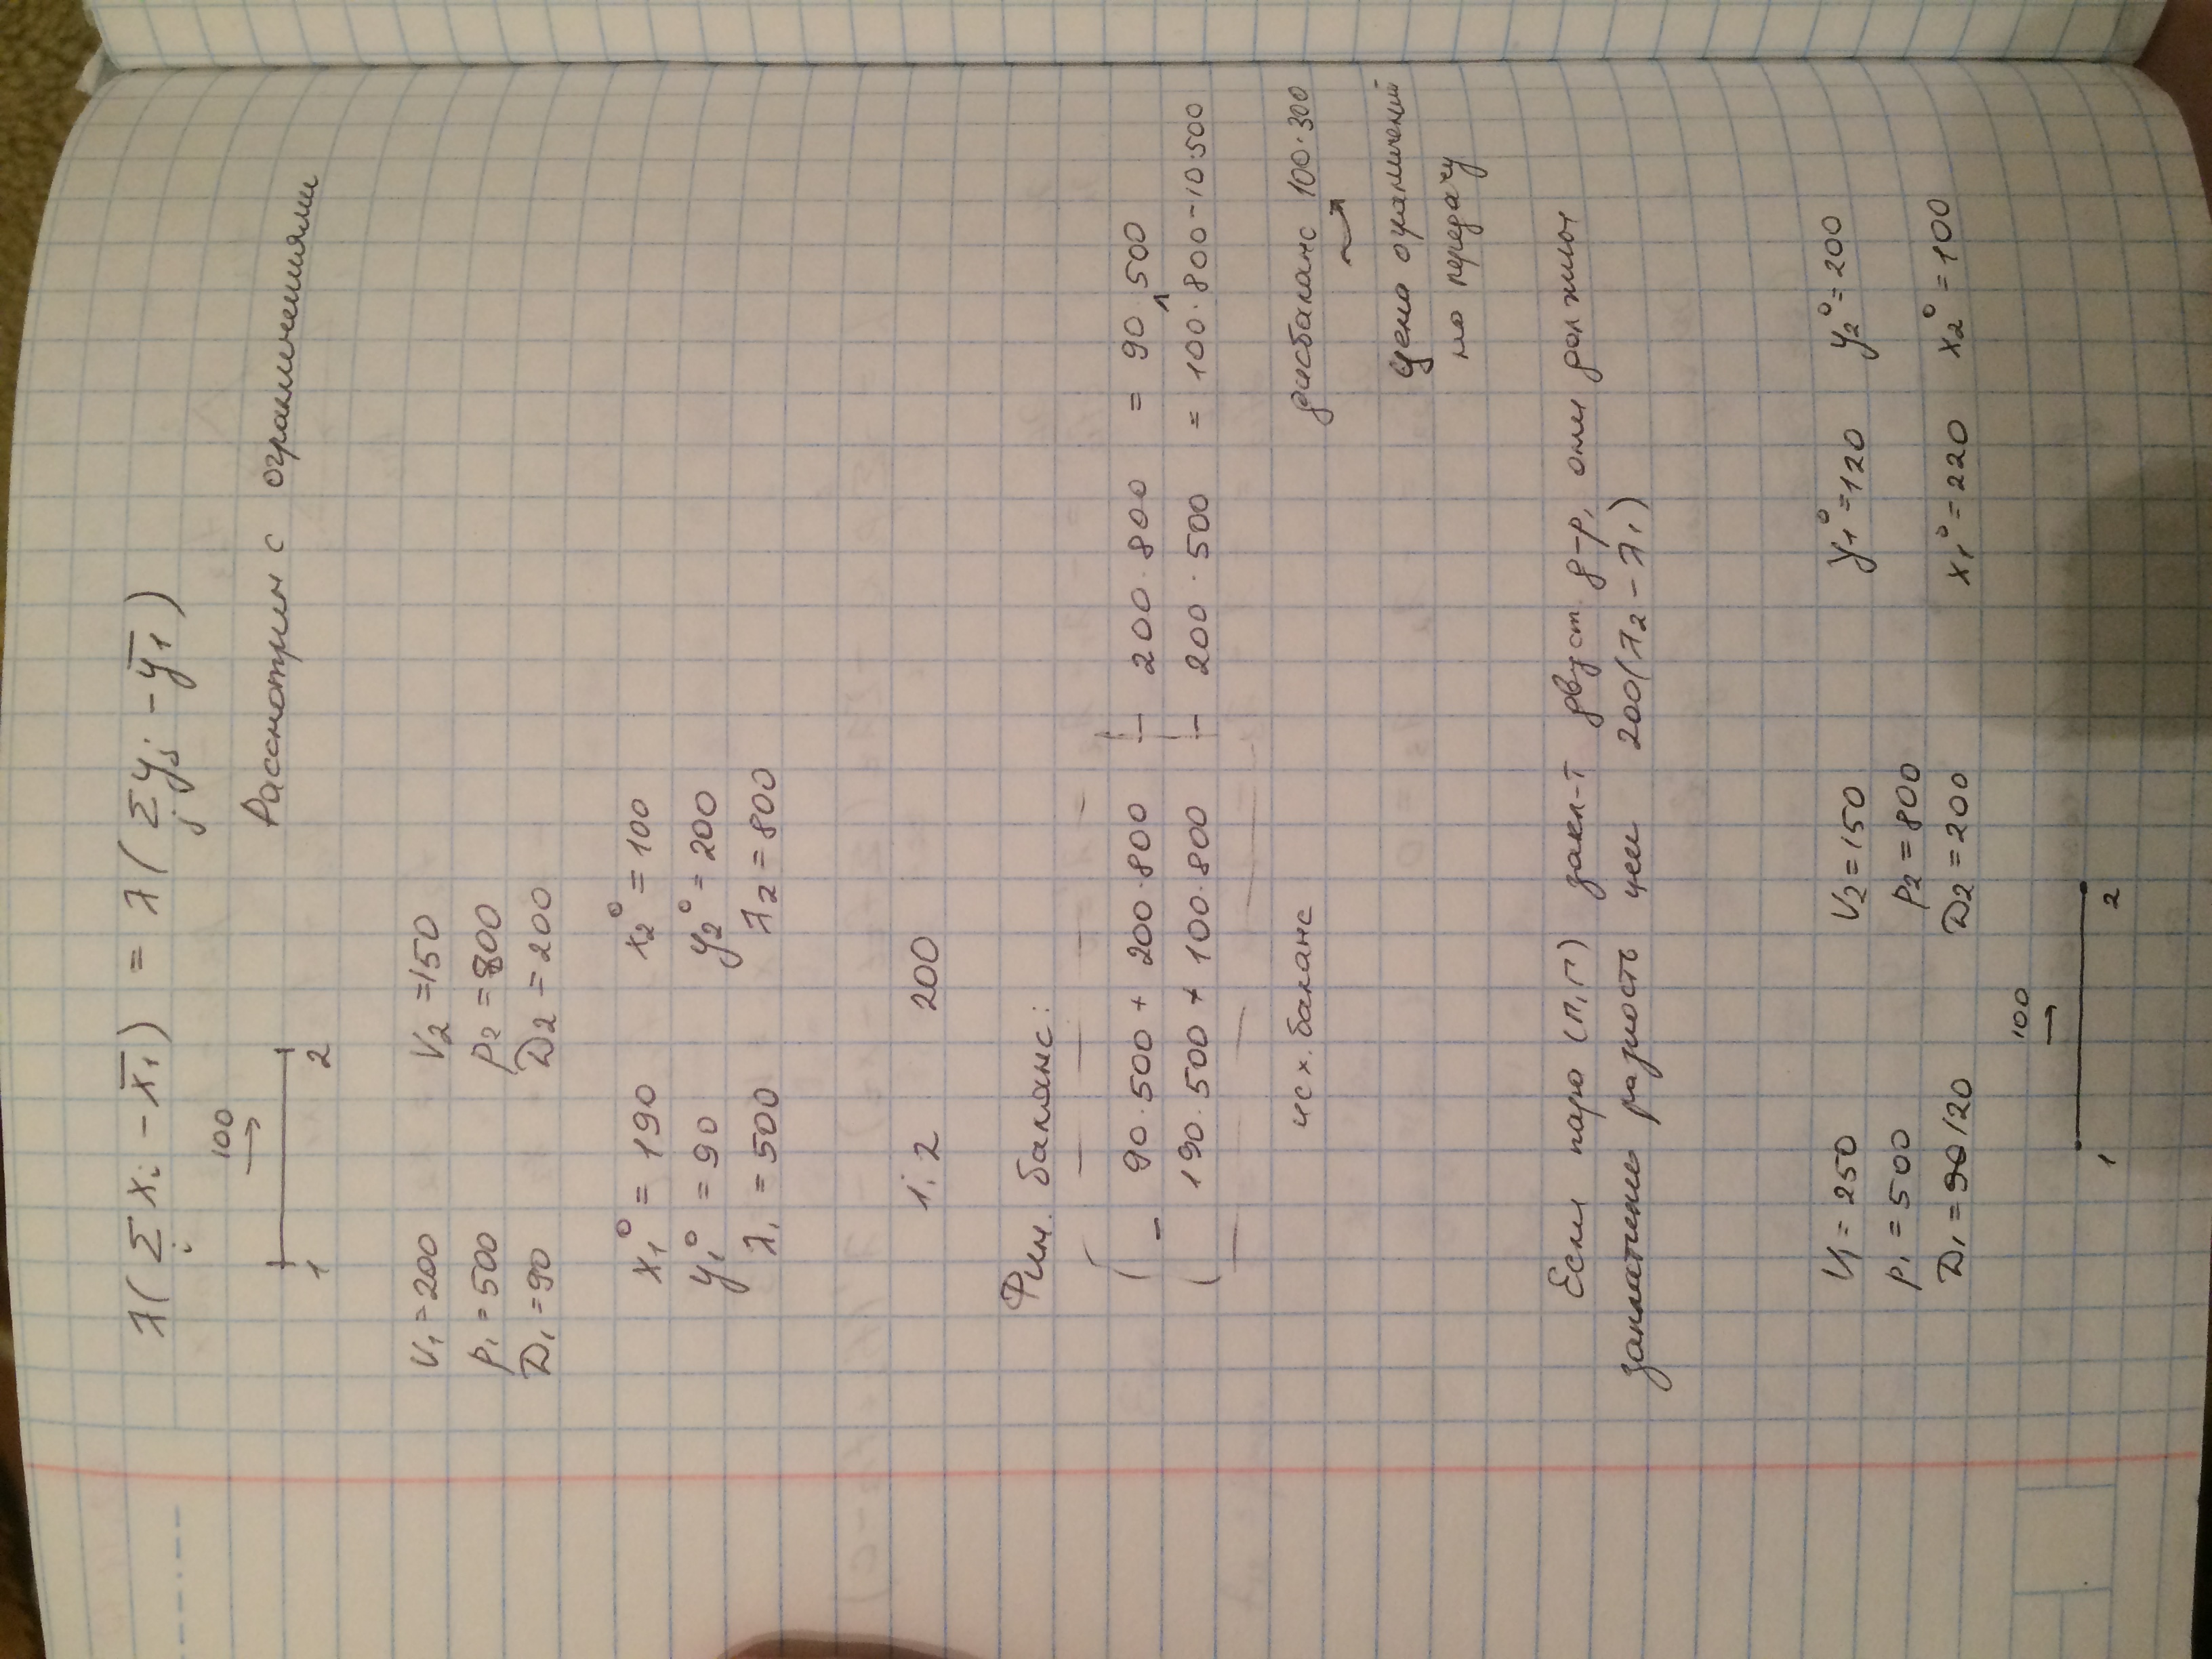 λ(Σ xᵢ − x̄₁) = λ(Σ yⱼ − ȳ₁)
i j
100
→
1 2
Рассмотрим с ограничениями
V₁ = 200 V₂ = 150
P₁ = 500 P₂ = 800
D₁ = 90 D₂ = 200
x₁⁰ = 190 x₂⁰ = 100
y₁⁰ = 90 y₂⁰ = 200
λ₁ = 500 λ₂ = 800
1; 2 200
Фин. баланс:
90·500 + 200·800 − 200·800 = 90·500
−
190·500 + 100·800 − 200·500 = 100·800−10·500
исх. баланс дисбаланс 100·300
цена ограничений
на передачу
Если пара (П,Г) закл-т двуст д-р, они должны
заплатить разность цен 200(λ₂ − λ₁)
V₁ = 250 V₂ = 150 y₁⁰ = 120 y₂⁰ = 200
P₁ = 500 P₂ = 800
D₁ = 90 120 D₂ = 200 x₁⁰ = 220 x₂⁰ = 100
100
→
1 2